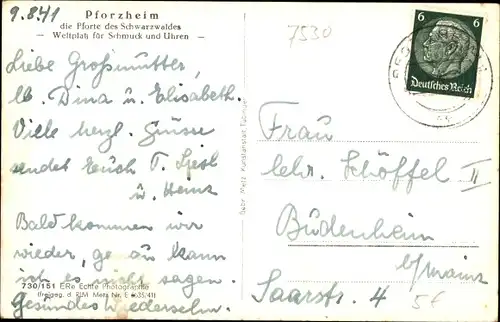 9.8.41
Pforzheim
die Pforte des Schwarzwaldes
– Weltplatz für Schmuck und Uhren –
Liebe Großmutter,
lb. Dina u. Elisabeth.
Viele herzl. Grüsse
sendet Euch T. Liesl
u. Heinz
Bald kommen wir
wieder, ge an kann
ich es nicht sagen.
Gesundes Wiedersehn.
730/151 ERe Echte Photographie
(freigeg. d. RLM Metz Nr. E 635/41)
Gebr. Metz, Kunstanstalt, Tübingen
7530
6 6
Deutsches Reich
Frau
Schöffel II
Büdenheim
b/Mainz
Saarstr. 4